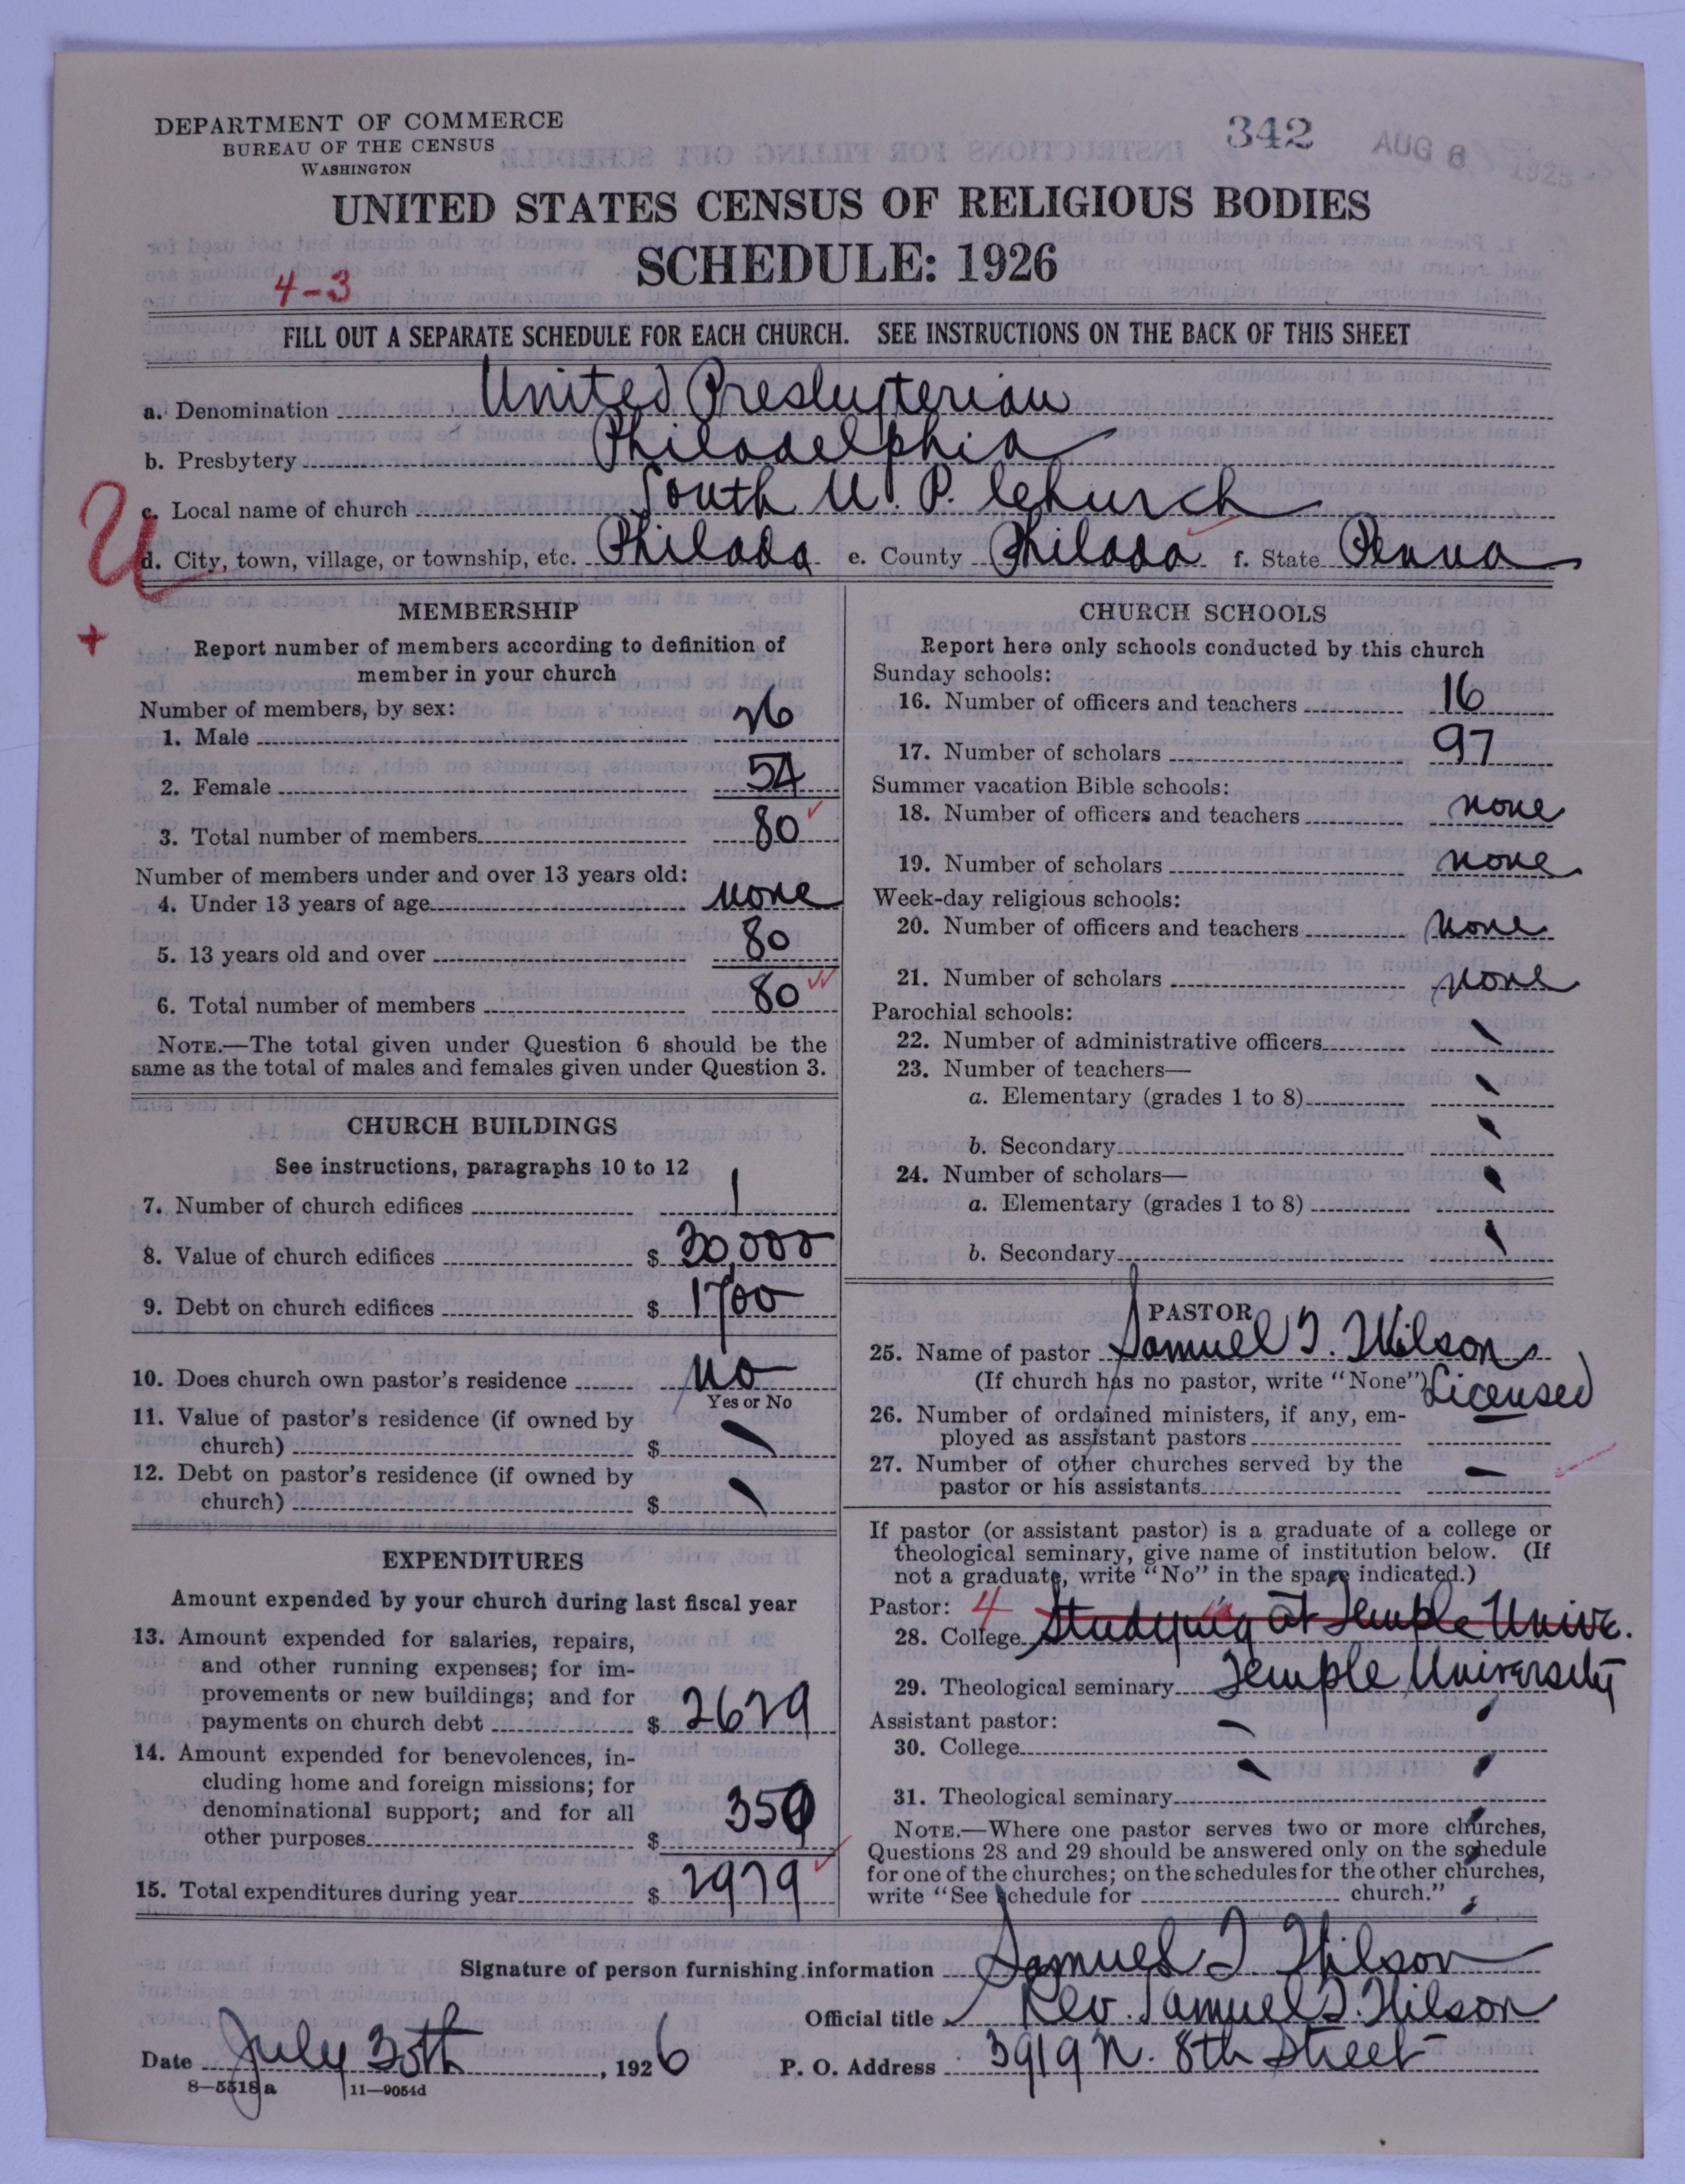 DEPARTMENT OF COMMERCE
BUREAU OF THE CENSUS
WASHINGTON
342 AUG 6 1926
UNITED STATES CENSUS OF RELIGIOUS BODIES
SCHEDULE: 1926
4-3
FILL OUT A SEPARATE SCHEDULE FOR EACH CHURCH. SEE INSTRUCTIONS ON THE BACK OF THIS SHEET
a. Denomination United Presbyterian
b. Presbytery Philadelphia
c. Local name of church South U. P. Church
U
d. City, town, village, or township, etc. Philada e. County Philada f. State Penna
+
MEMBERSHIP
Report number of members according to definition of
member in your church
Number of members, by sex:
1. Male 26
2. Female 54
3. Total number of members 80
Number of members under and over 13 years old:
4. Under 13 years of age none
5. 13 years old and over 80
6. Total number of members 80
NOTE.—The total given under Question 6 should be the
same as the total of males and females given under Question 3.
CHURCH BUILDINGS
See instructions, paragraphs 10 to 12
7. Number of church edifices 1
8. Value of church edifices $ 30,000
9. Debt on church edifices $ 1700
10. Does church own pastor's residence no
Yes or No
11. Value of pastor's residence (if owned by
church) $
12. Debt on pastor's residence (if owned by
church) $
EXPENDITURES
Amount expended by your church during last fiscal year
13. Amount expended for salaries, repairs,
and other running expenses; for im-
provements or new buildings; and for
payments on church debt $ 2629
14. Amount expended for benevolences, in-
cluding home and foreign missions; for
denominational support; and for all
other purposes $ 350
15. Total expenditures during year $ 2979
CHURCH SCHOOLS
Report here only schools conducted by this church
Sunday schools:
16. Number of officers and teachers 16
17. Number of scholars 97
Summer vacation Bible schools:
18. Number of officers and teachers none
19. Number of scholars none
Week-day religious schools:
20. Number of officers and teachers none
21. Number of scholars none
Parochial schools:
22. Number of administrative officers
23. Number of teachers—
a. Elementary (grades 1 to 8)
b. Secondary
24. Number of scholars—
a. Elementary (grades 1 to 8)
b. Secondary
PASTOR
25. Name of pastor Samuel T. Wilson
(If church has no pastor, write "None") Licensed
26. Number of ordained ministers, if any, em-
ployed as assistant pastors
27. Number of other churches served by the
pastor or his assistants —
If pastor (or assistant pastor) is a graduate of a college or
theological seminary, give name of institution below. (If
not a graduate, write "No" in the space indicated.)
Pastor: 4
28. College Studying at Temple Unive.
29. Theological seminary Temple University
Assistant pastor:
30. College
31. Theological seminary
NOTE.—Where one pastor serves two or more churches,
Questions 28 and 29 should be answered only on the schedule
for one of the churches; on the schedules for the other churches,
write "See schedule for church."
Signature of person furnishing information Samuel T. Wilson
Official title Rev. Samuel T. Wilson
Date July 30th, 1926 P. O. Address 3919 N. 8th Street
8-5518 a 11-9054d